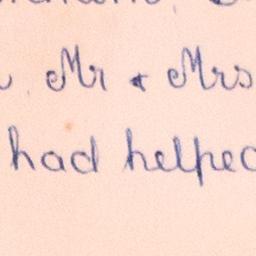 Mr & Mrs
had helped